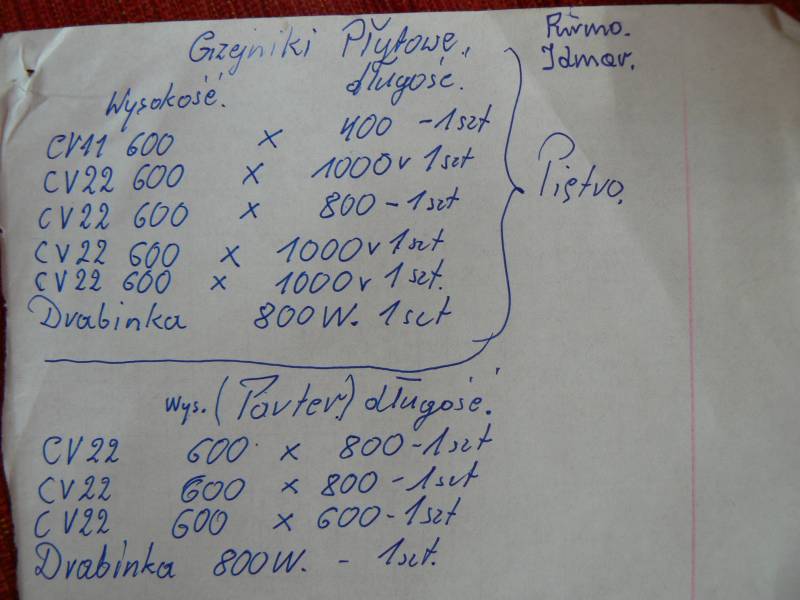 Grzejniki Płytowe.
Purmo.
Idmar.
Wysokość. długość.
CV11 600 x 400 - 1szt
CV22 600 x 1000 v 1szt
CV22 600 x 800 - 1szt
CV22 600 x 1000 v 1szt
CV22 600 x 1000 v 1szt.
Drabinka 800W. 1szt
Piętro.
wys. (Parter) długość.
CV22 600 x 800 - 1szt
CV22 600 x 800 - 1szt
CV22 600 x 600 - 1szt
Drabinka 800W. - 1szt.